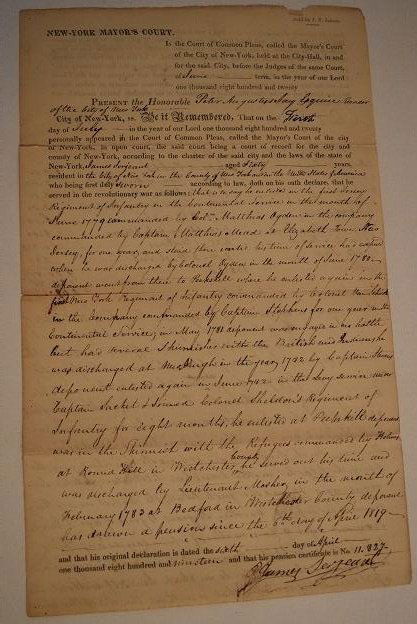 NEW-YORK MAYOR'S COURT.
In the Court of Common Pleas, called the Mayor's Court
of the City of New York, held at the City-Hall, in and
for the said City, before the Judges of the same Court,
of June term, in the year of our Lord
one thousand eight hundred and twenty
PRESENT the Honorable Peter Augustus Jay Esquire Recorder
of the City of New York
City of New-York, ss. Be it Remembered, That on the first
day of July in the year of our Lord one thousand eight hundred and twenty
personally appeared in the Court of Common Pleas, called the Mayor's Court of the city
of New-York, in open court, the said court being a court of record for the city and
county of New-York, according to the charter of the said city and the laws of the state of
New-York, James Serjeant aged Sixty years,
resident in the City of New York in the County of New York in the United States of America
who being first duly sworn according to law, doth on his oath declare, that he
served in the revolutionary war as follows: that is to say he enlisted in the first Jersey
Regiment of Infantry in the Continental Service in the month of
June 1779 commanded by Coln Matthias Ogden in the company
commanded by Captain Matthias Mead at Elizabeth Town New
Jersey, for one year, and
when he was discharged by Colonel Ogden in the month of June 1780.
deponent went from there to Peekskill where he enlisted again in the
first New York Regiment of Infantry commanded by Colonel Van
in the Company commanded by Captain Stephens for one year in the
Continental Service; in May 1781 deponent was engaged in no battle
but had several Skirmishes with the British and
was discharged at Newburgh in the year 1782 by Captain
deponent enlisted again in June 1782 in the levy service under
Captain Sacket & joined Colonel Sheldon's Regiment of
Infantry for eight months, he enlisted at Peekskill deponent
was in the Skirmish with the Refugees commanded by
at Round Hill in Westchester County he served out his time and
was discharged by Lieutenant Mosher in the month of
February 1783 at Bedford in Westchester County deponent
has drawn a pension since the 6th day of April 1819
and that his original declaration is dated the sixth day of April
one thousand eight hundred and nineteen and that his pension certificate is No. 11.827
James Serjeant